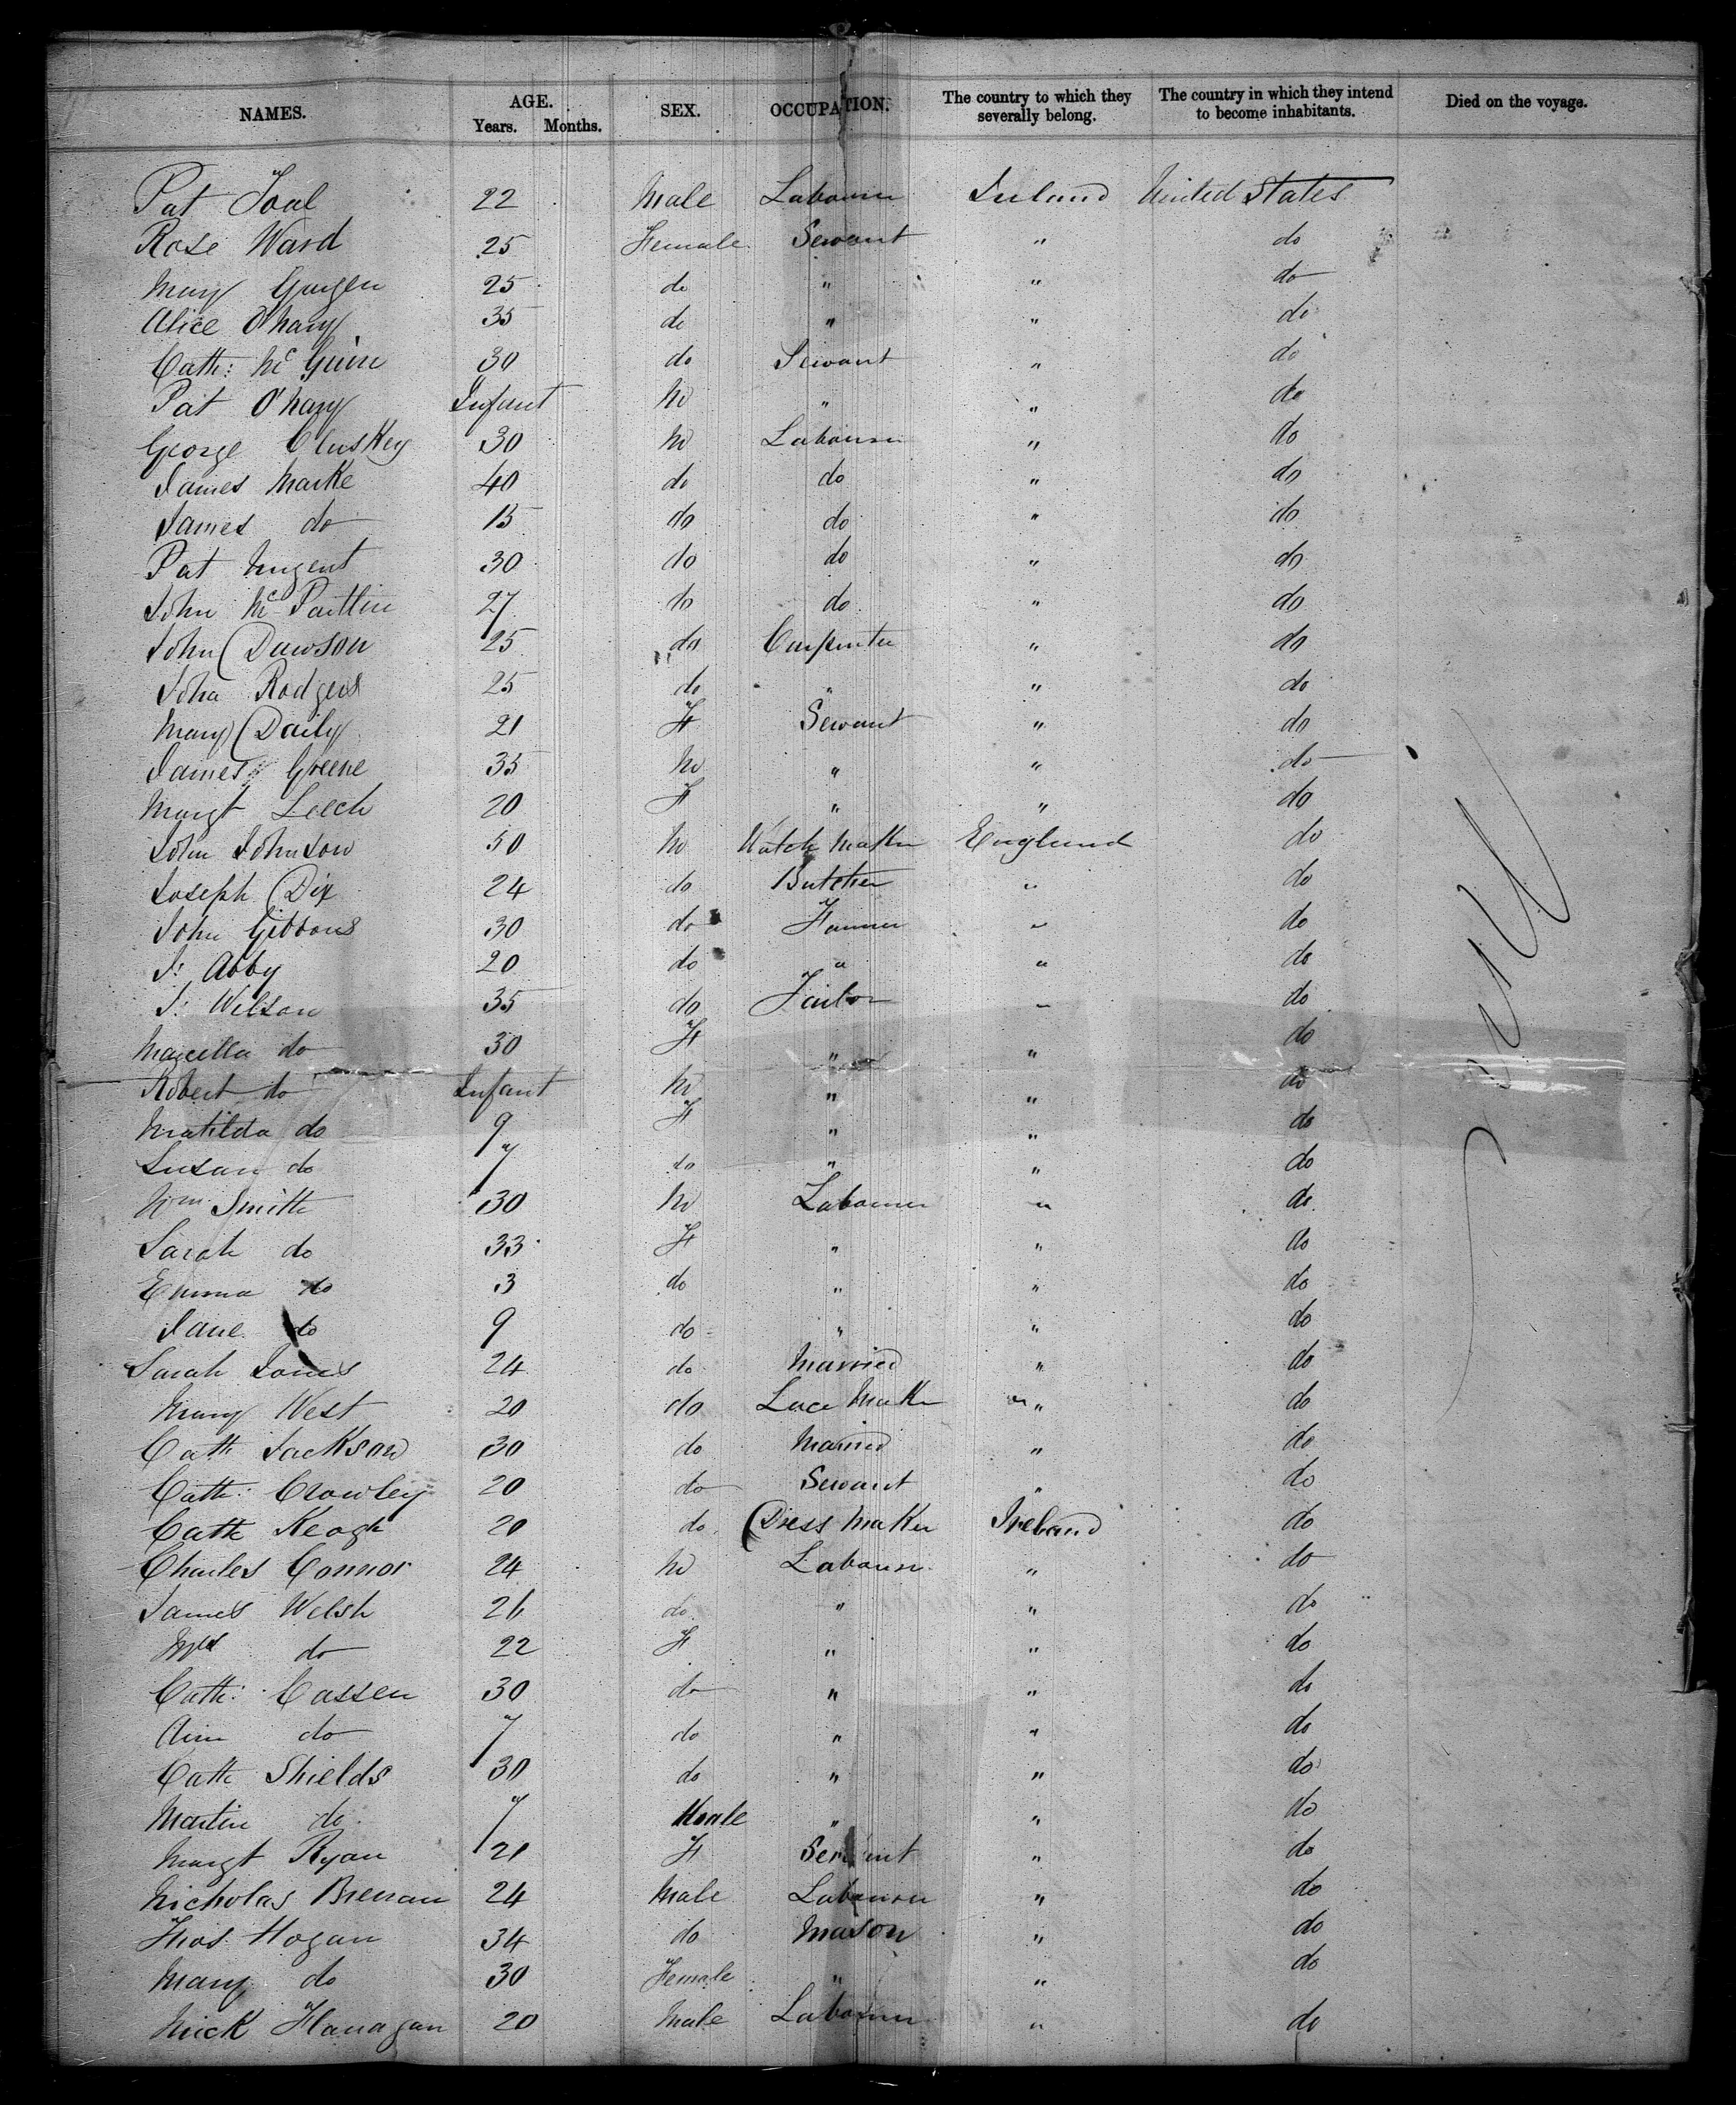 NAMES. AGE. SEX. OCCUPATION. The country to which they severally belong. The country in which they intend to become inhabitants. Died on the voyage.
Years. Months.
Pat Toal 22 Male Labourer Ireland United States
Rose Ward 25 Female Servant " do
Mary 25 do " " do
Alice O'Hary 35 do " " do
Cath: McGuire 30 do Servant " do
Pat O'Hary Infant M " " do
George Cluskey 30 M Labourer " do
James Marke 40 do do " do
James do 15 do do " do
Pat Nugent 30 do do " do
John McPartlin 27 do do " do
John Dawson 25 do Carpenter " do
John Rodgers 25 do " " do
Mary Daily 21 F Servant " do
James Greene 35 M " " do
Margt Leech 20 F " " do
John Johnson 50 M Watch Maker England do
Joseph Dix 24 do Butcher " do
John Gibbons 30 do Farmer " do
J: Abby 20 do " " do
J: Wilson 35 do Tailor " do
Marcella do 30 F " " do
Robert do Infant M " " do
Matilda do 9 F " " do
Susan do 7 do " " do
Wm Smith 30 M Labourer " do
Sarah do 33 F " " do
Emma do 3 do " " do
Jane do 9 do " " do
Sarah Jones 24 do Married " do
Mary West 20 do Lace Maker " do
Cath Jackson 30 do Married " do
Cath: Crowley 20 do Servant " do
Cath Keogh 20 do Dress Maker Ireland do
Charles Connor 24 M Labourer " do
James Welsh 26 do " " do
Mrs do 22 F " " do
Cath: Cassen 30 do " " do
Ann do 7 do " " do
Cath Shields 30 do " " do
Martin do 7 Male " " do
Margt Ryan 21 F Servant " do
Nicholas Brenan 24 Male Labourer " do
Thos Hogan 34 do Mason " do
Mary do 30 Female " " do
Mick Flanagan 20 Male Labourer " do